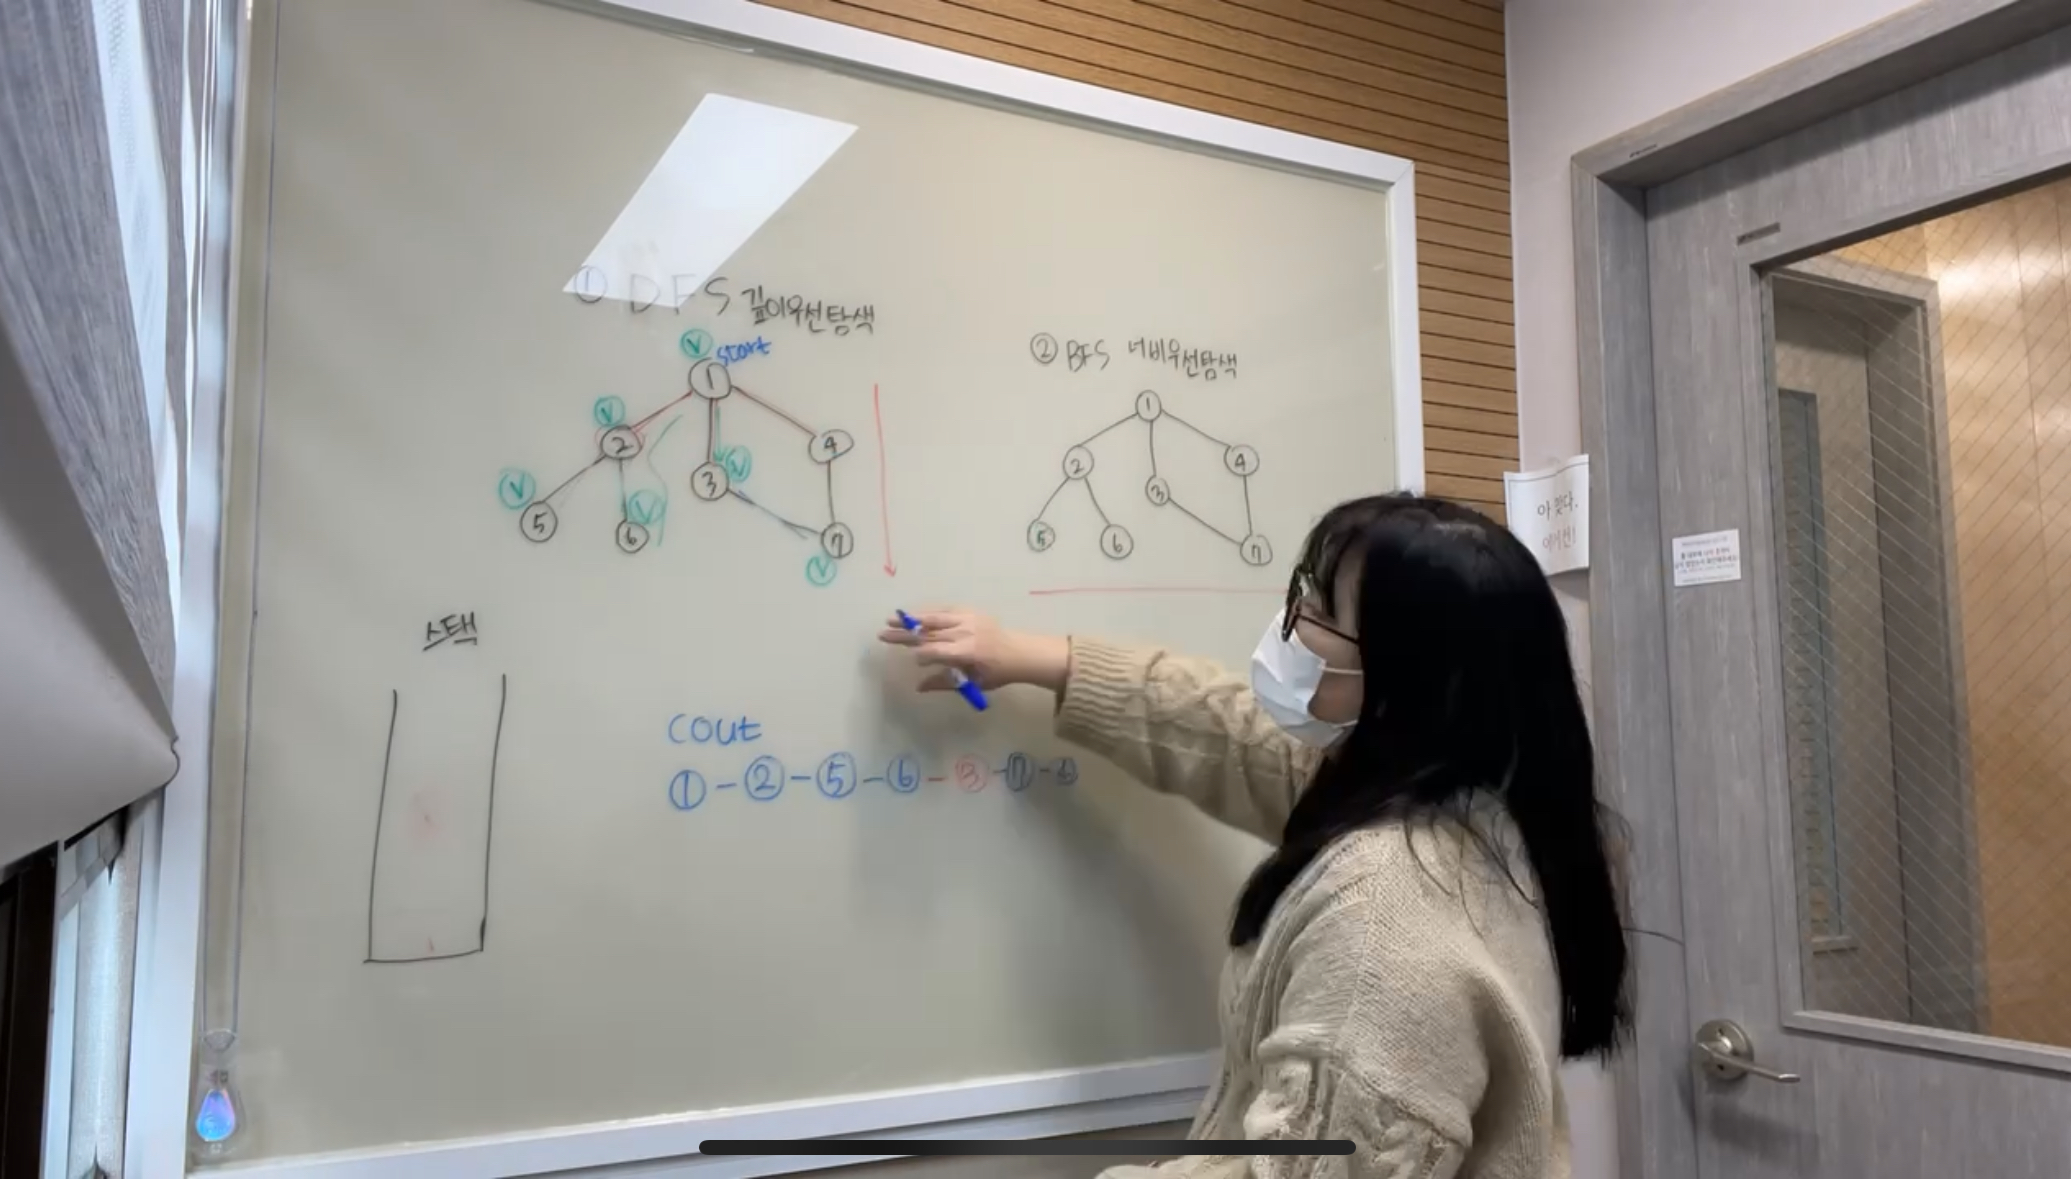 ① DFS 깊이우선탐색
V start
1
V
2
4
V
3
V
V
5
6
7
V
② BFS 너비우선탐색
1
2
4
3
5
6
7
스택
cout
①-②-⑤-⑥-③-⑦-④
아 맞다,